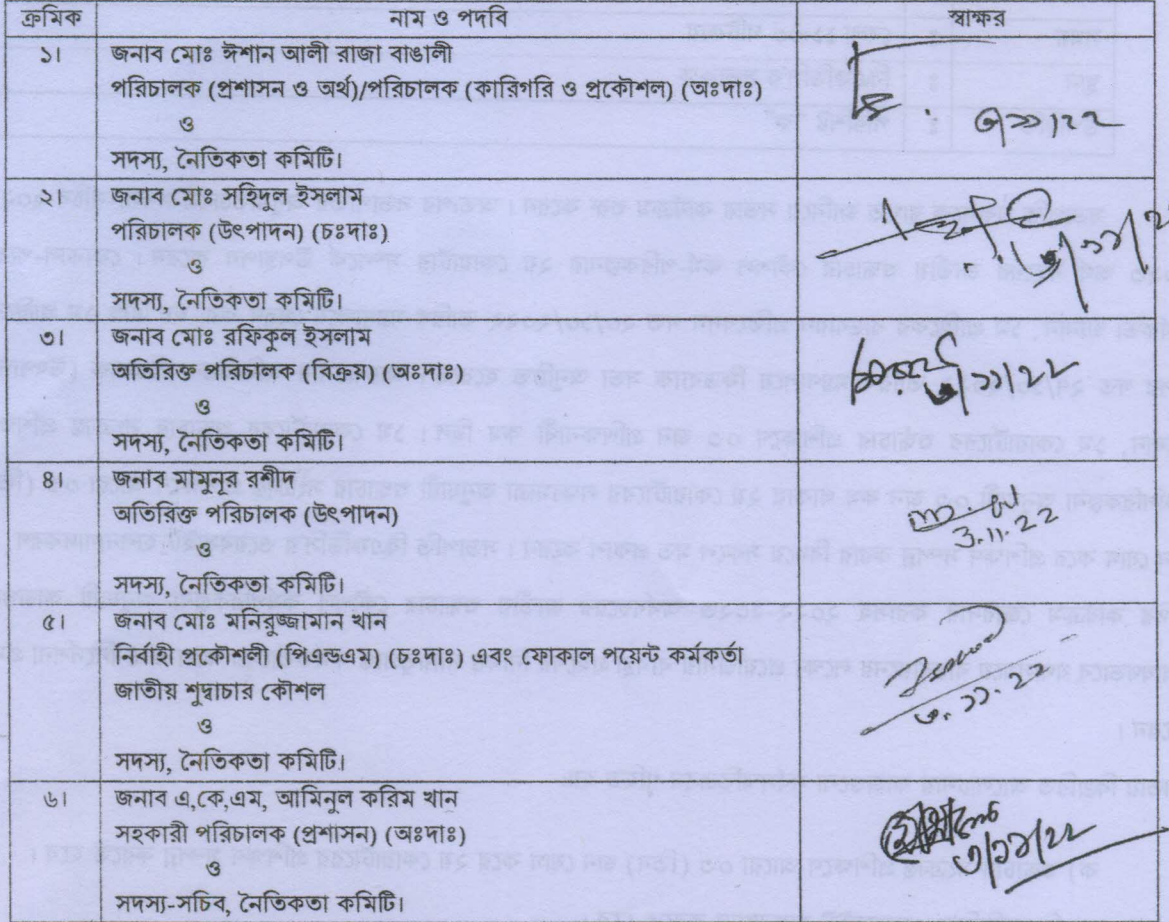 ক্রমিক নাম ও পদবি স্বাক্ষর
১। জনাব মোঃ ঈশান আলী রাজা বাঙালী
পরিচালক (প্রশাসন ও অর্থ)/পরিচালক (কারিগরি ও প্রকৌশল) (অঃদাঃ)
ও
সদস্য, নৈতিকতা কমিটি।
৩/১১/২২
২। জনাব মোঃ সহিদুল ইসলাম
পরিচালক (উৎপাদন) (চঃদাঃ)
ও
সদস্য, নৈতিকতা কমিটি।
৩। জনাব মোঃ রফিকুল ইসলাম
অতিরিক্ত পরিচালক (বিক্রয়) (অঃদাঃ)
ও
সদস্য, নৈতিকতা কমিটি।
৩/১১/২২
৪। জনাব মামুনূর রশীদ
অতিরিক্ত পরিচালক (উৎপাদন)
ও
সদস্য, নৈতিকতা কমিটি।
3.11.22
৫। জনাব মোঃ মনিরুজ্জামান খান
নির্বাহী প্রকৌশলী (পিএন্ডএম) (চঃদাঃ) এবং ফোকাল পয়েন্ট কর্মকর্তা
জাতীয় শুদ্বাচার কৌশল
ও
সদস্য, নৈতিকতা কমিটি।
৬। জনাব এ,কে,এম, আমিনুল করিম খান
সহকারী পরিচালক (প্রশাসন) (অঃদাঃ)
ও
সদস্য-সচিব, নৈতিকতা কমিটি।
৩/১১/২২